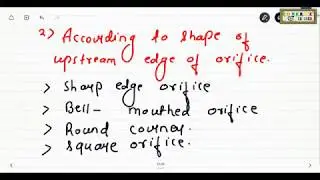 2) According to shape of
upstream edge of orifice.
> Sharp edge orifice
> Bell- mouthed orifice
> Round courner.
> Square orifice.